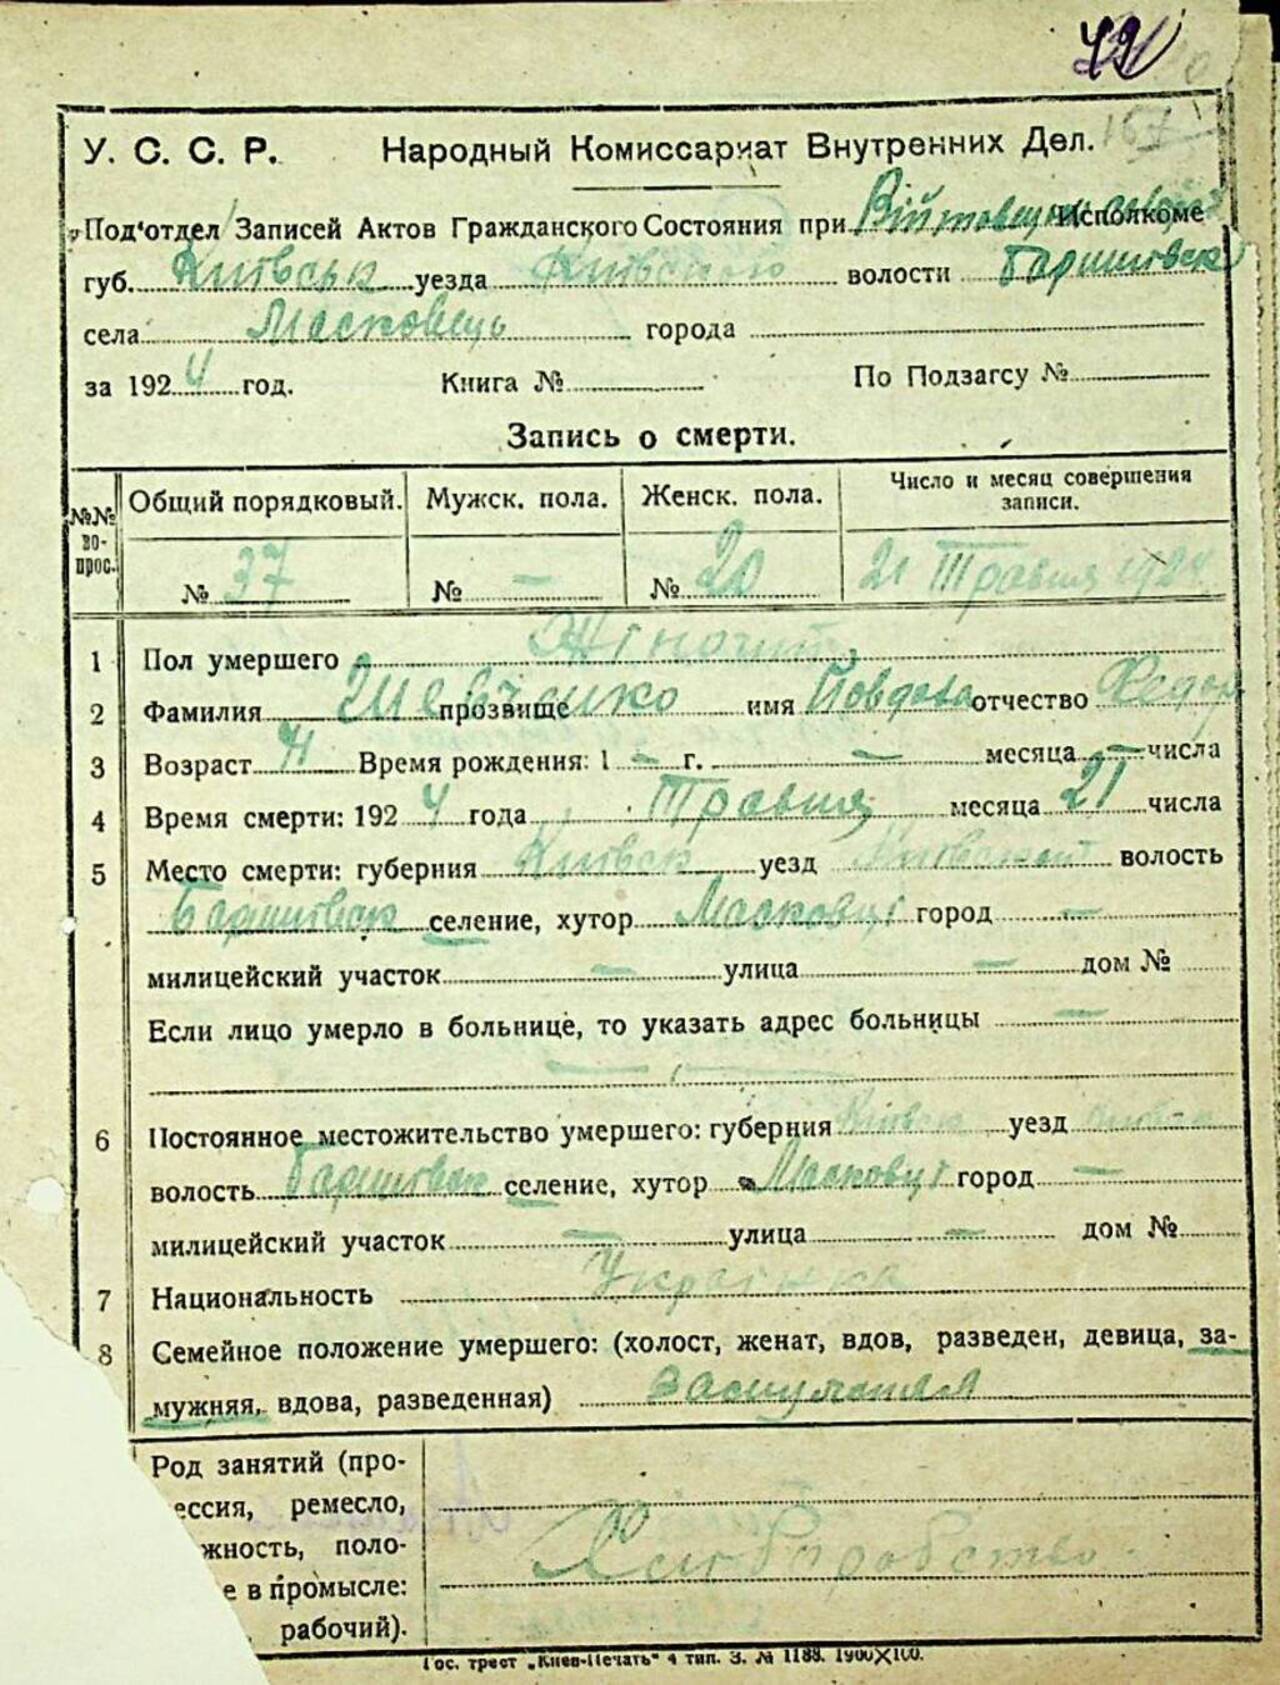 42
167
У. С. С. Р. Народный Комиссариат Внутренних Дел.
Под'отдел Записей Актов Гражданского Состояния при Исполкоме
губ. Київськ уезда Київського волости Баришівськ
села Масковець города
за 1924 год. Книга № По Подзагсу №
Запись о смерти.
№№ вопрос. Общий порядковый. Мужск. пола. Женск. пола. Число и месяц совершения записи.
№ 37 № — № 20 21 Травня 1924
1 Пол умершего Жіночит
2 Фамилия прозвище Шевченко имя Йовдоха отчество Федор
3 Возраст Время рождения: 1 — г. — месяца — числа
4 Время смерти: 1924 года Травня месяца 21 числа
5 Место смерти: губерния Київськ уезд волость
Баришівськ селение, хутор Масковці город —
милицейский участок — улица — дом №
Если лицо умерло в больнице, то указать адрес больницы —
6 Постоянное местожительство умершего: губерния Київськ уезд
волость Баришівськ селение, хутор Масковці город —
милицейский участок — улица — дом №
7 Национальность Українка
8 Семейное положение умершего: (холост, женат, вдов, разведен, девица, за-
мужняя, вдова, разведенная) замужняя
Род занятий (про-
ессия, ремесло,
жность, поло-
е в промысле:
рабочий).
Хліборобство.
Гос. трест „Киев-Печать" 4 тип. З. № 1188. 1900×100.